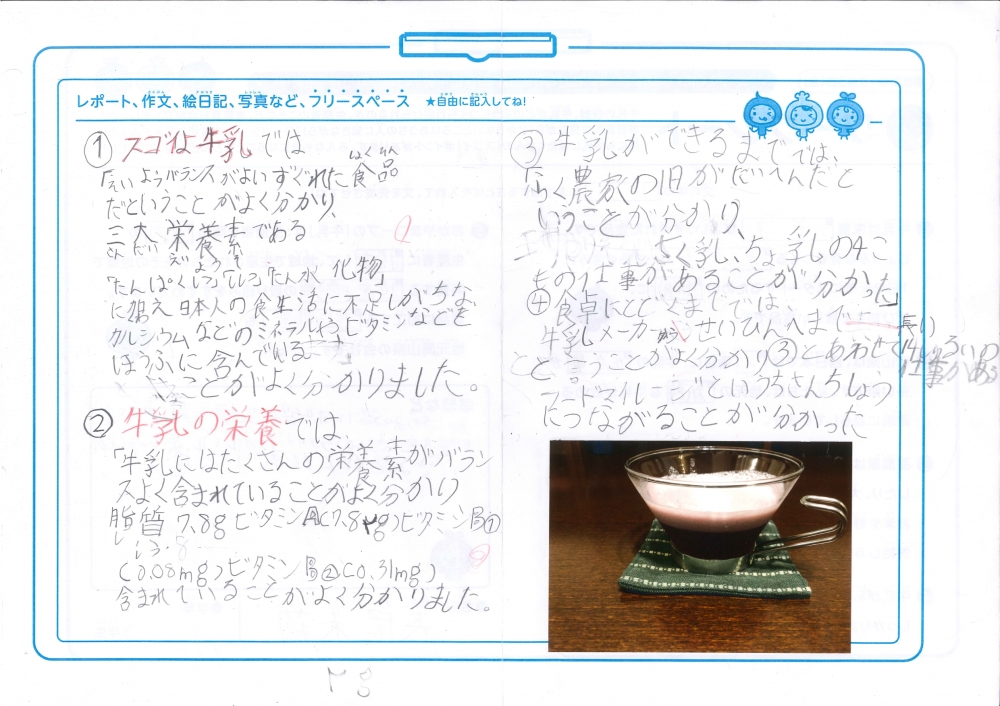 レポート、作文、絵日記、写真など、フリースペース ★自由に記入してね!
① スゴイよ牛乳では
「えいようバランスがよいすぐれた食品
だということがよく分かり、
三大栄養素である
「たんぱくしつ」「ししつ」「たん水化物」
に加え日本人の食生活に不足しがちな
カルシウムなどのミネラルやビタミンなどを
ほうふに含んでいる
ことがよく分かりました。
② 牛乳の栄養では、
「牛乳にはたくさんの栄養素がバラン
スよく含まれていることがよく分かり
脂質 7.8g ビタミンA(7.8μg)ビタミンB①
(0.08mg)ビタミンB②(0.31mg)
含まれていることがよく分かりました。
③ 牛乳ができるまででは、
らく農家の
いうことが分かり、
さく乳、ちょ乳の4こ
もの仕事があることが分かった」
④ 食卓にとどくまででは、
牛乳メーカーからせいひんへまで長い
こと言うことがよく分かり③とあわせて
仕事がある
フードマイレージというちさんちしょう
につながることが分かった